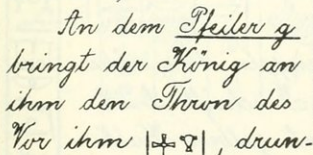 An dem Pfeiler g
bringt der König an
ihm den Thron des
Vor ihm | |, drun-